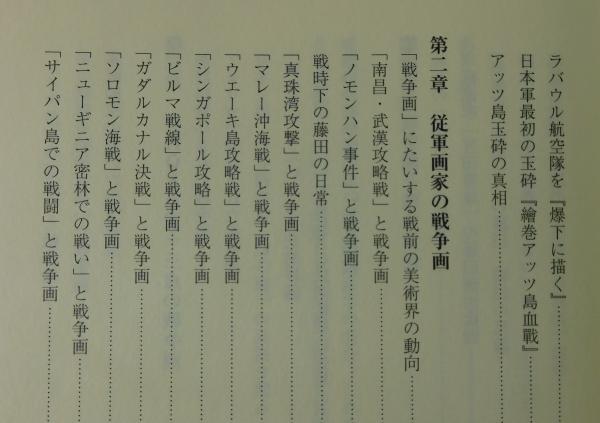 ラバウル航空隊を『爆下に描く』
日本軍最初の玉砕『繪巻アッツ島血戦』
アッツ島玉砕の真相
第二章　従軍画家の戦争画
「戦争画」にたいする戦前の美術界の動向
「南昌・武漢攻略戦」と戦争画
「ノモンハン事件」と戦争画
戦時下の藤田の日常
「真珠湾攻撃」と戦争画
「マレー沖海戦」と戦争画
「ウエーキ島攻略戦」と戦争画
「シンガポール攻略」と戦争画
「ビルマ戦線」と戦争画
「ガダルカナル決戦」と戦争画
「ソロモン海戦」と戦争画
「ニューギニア密林での戦い」と戦争画
「サイパン島での戦闘」と戦争画